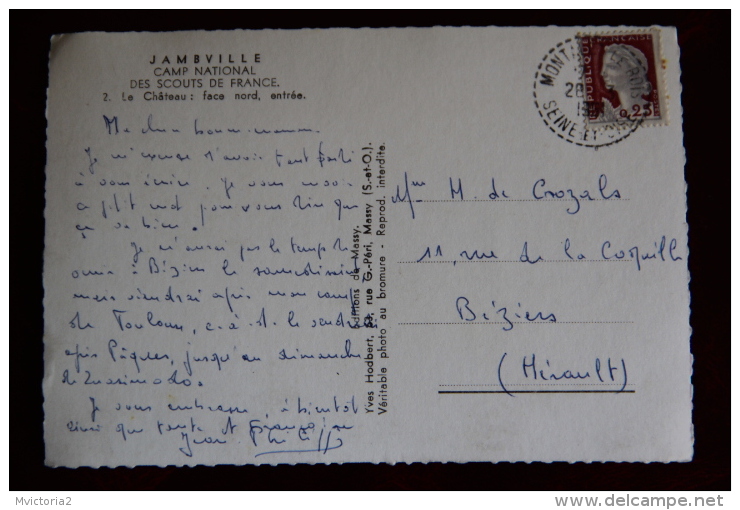 JAMBVILLE
CAMP NATIONAL
DES SCOUTS DE FRANCE.
2. Le Château : face nord, entrée.
Ma chère bonne-maman
Je m'excuse d'avoir tant
à vous écrire. Je vous
un p'tit mot pour vous dire que
ça va bien.
Je n'aurai pas le temps
à Béziers le samedi
mais viendrai après mon camp
de Toulon, c.-à-d. le vendredi
après Pâques, jusqu'au dimanche
de Quasimodo.
Je vous embrasse, à bientôt
ainsi que toute
Jean
Éditions de Massy.
Yves Hodbert, rue G.-Péri, Massy (S.-et-O.)
Véritable photo au bromure - Reprod. interdite.
RÉPUBLIQUE FRANÇAISE
0,25
28
SEINE-ET-
Mme H. de Crozals
11, rue de la Coquille
Béziers
(Hérault)
Mvictoria2
http://www.delcampe.net